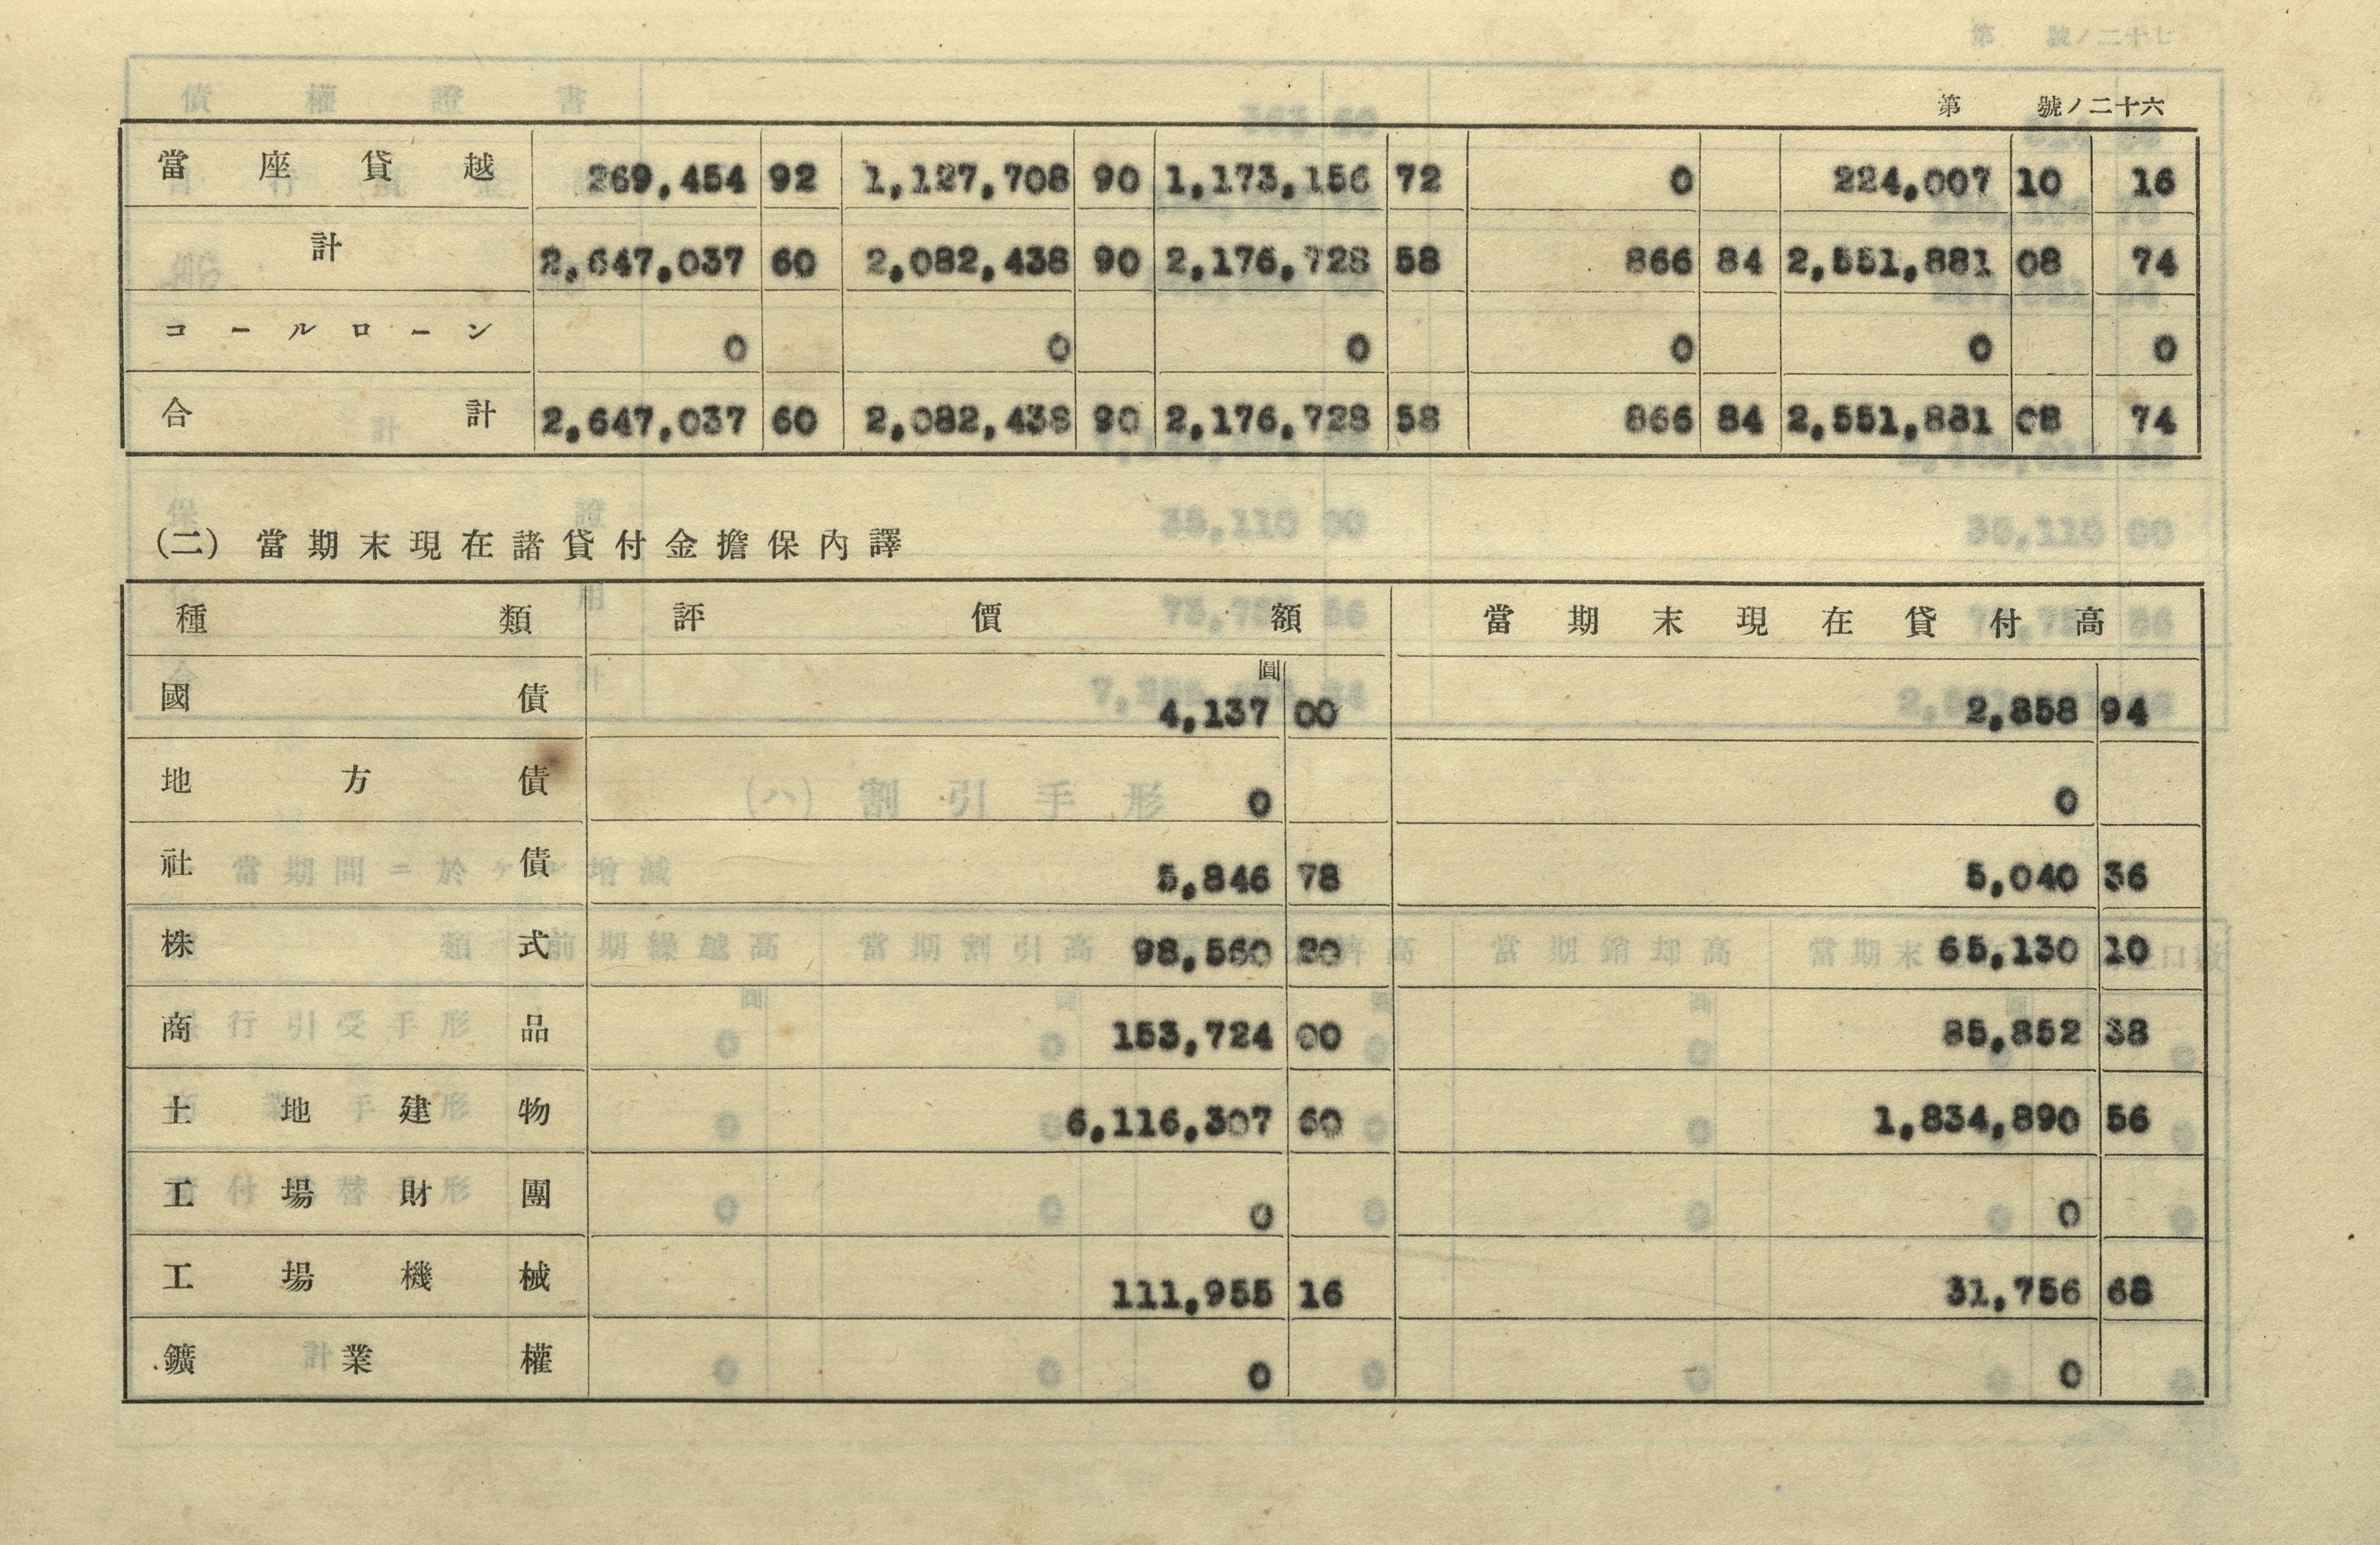 第 號ノ二十六
當座貸越 269,454 92 1,127,708 90 1,173,156 72 0 224,007 10 16
計 2,647,037 60 2,082,438 90 2,176,728 58 866 84 2,551,881 08 74
コールローン 0 0 0 0 0 0
合計 2,647,037 60 2,082,438 90 2,176,728 58 866 84 2,551,881 08 74
(二) 當期末現在諸貸付金擔保內譯
種類 評價額 當期末現在貸付高
圓
國債 4,137 00 2,858 94
地方債 0 0
社債 5,846 78 5,040 36
株式 98,560 20 65,130 10
商品 153,724 00 85,852 38
土地建物 6,116,307 60 1,834,890 56
工場財團 0 0
工場機械 111,955 16 31,756 68
鑛業權 0 0